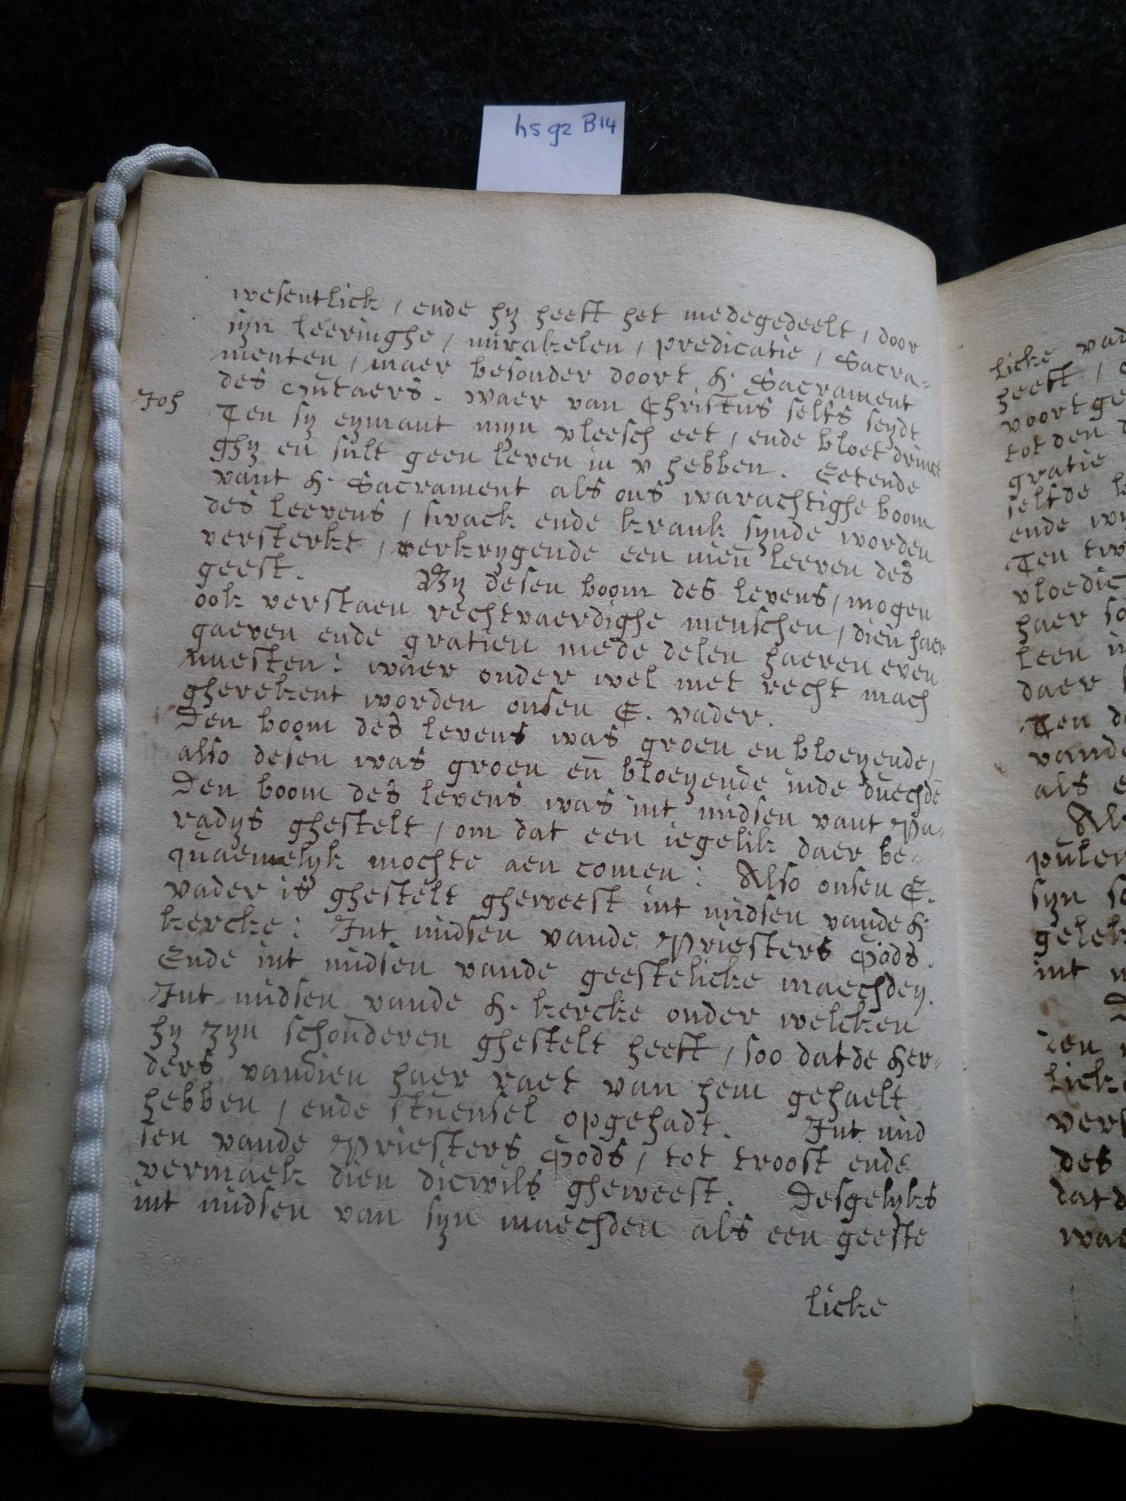 hs 92 B14
wesentlick, ende hy heeft het medegedeelt, door
syn leeringhe, mirakelen, predicatie, Sacra-
menten, maer besonder doort H. Sacrament
des outaers. waer van Christus selfs seydt
Joh
Ten sy eymant myn vleesch eet, ende bloet drinct
ghy en sult geen leven in v hebben. Eetende
vant H. Sacrament als ons warachtighe boom
des leevens, swack ende krank synde worden
versterkt, verkrygende een nieu leeven des
geest. By desen boom des levens, mogen
ook verstaen rechtvaerdighe menschen, dien haer
gaeven ende gratien mede delen haeren even
naesten: waer onder wel met recht mach
gherekent worden onsen E. vader.
Den boom des levens was groen en bloeyende,
also desen was groen en̄ bloeyende inde duechdē
Den boom des levens was int midsen vant Pa-
radys ghestelt, om dat een iegelik daer be-
quaemelyk mochte aen comen: Also onsen E.
vader is ghestelt gheweest int midsen vande H.
kercke: Int midsen vande Priesters Gods.
Ende int midsen vande geestelicke maechden.
Int midsen vande H. kercke onder welcken
hy zyn schouderen ghestelt heeft, soo dat de her-
ders vandien haer raet van hem gehaelt
hebben, ende stuensel opgehadt. Int mid
sen vande Priesters Gods, tot troost ende
vermaek dien dicwils gheweest. Desgelyks
int midsen van syn maechden als een geeste
licke
licke van
heeft,
voort ge
tot den
gratie
selfde
ende
Ten
vloedic
haer
leen
daer
Ten
vande
als
syn
gelek
int
ver
des
dat
wae